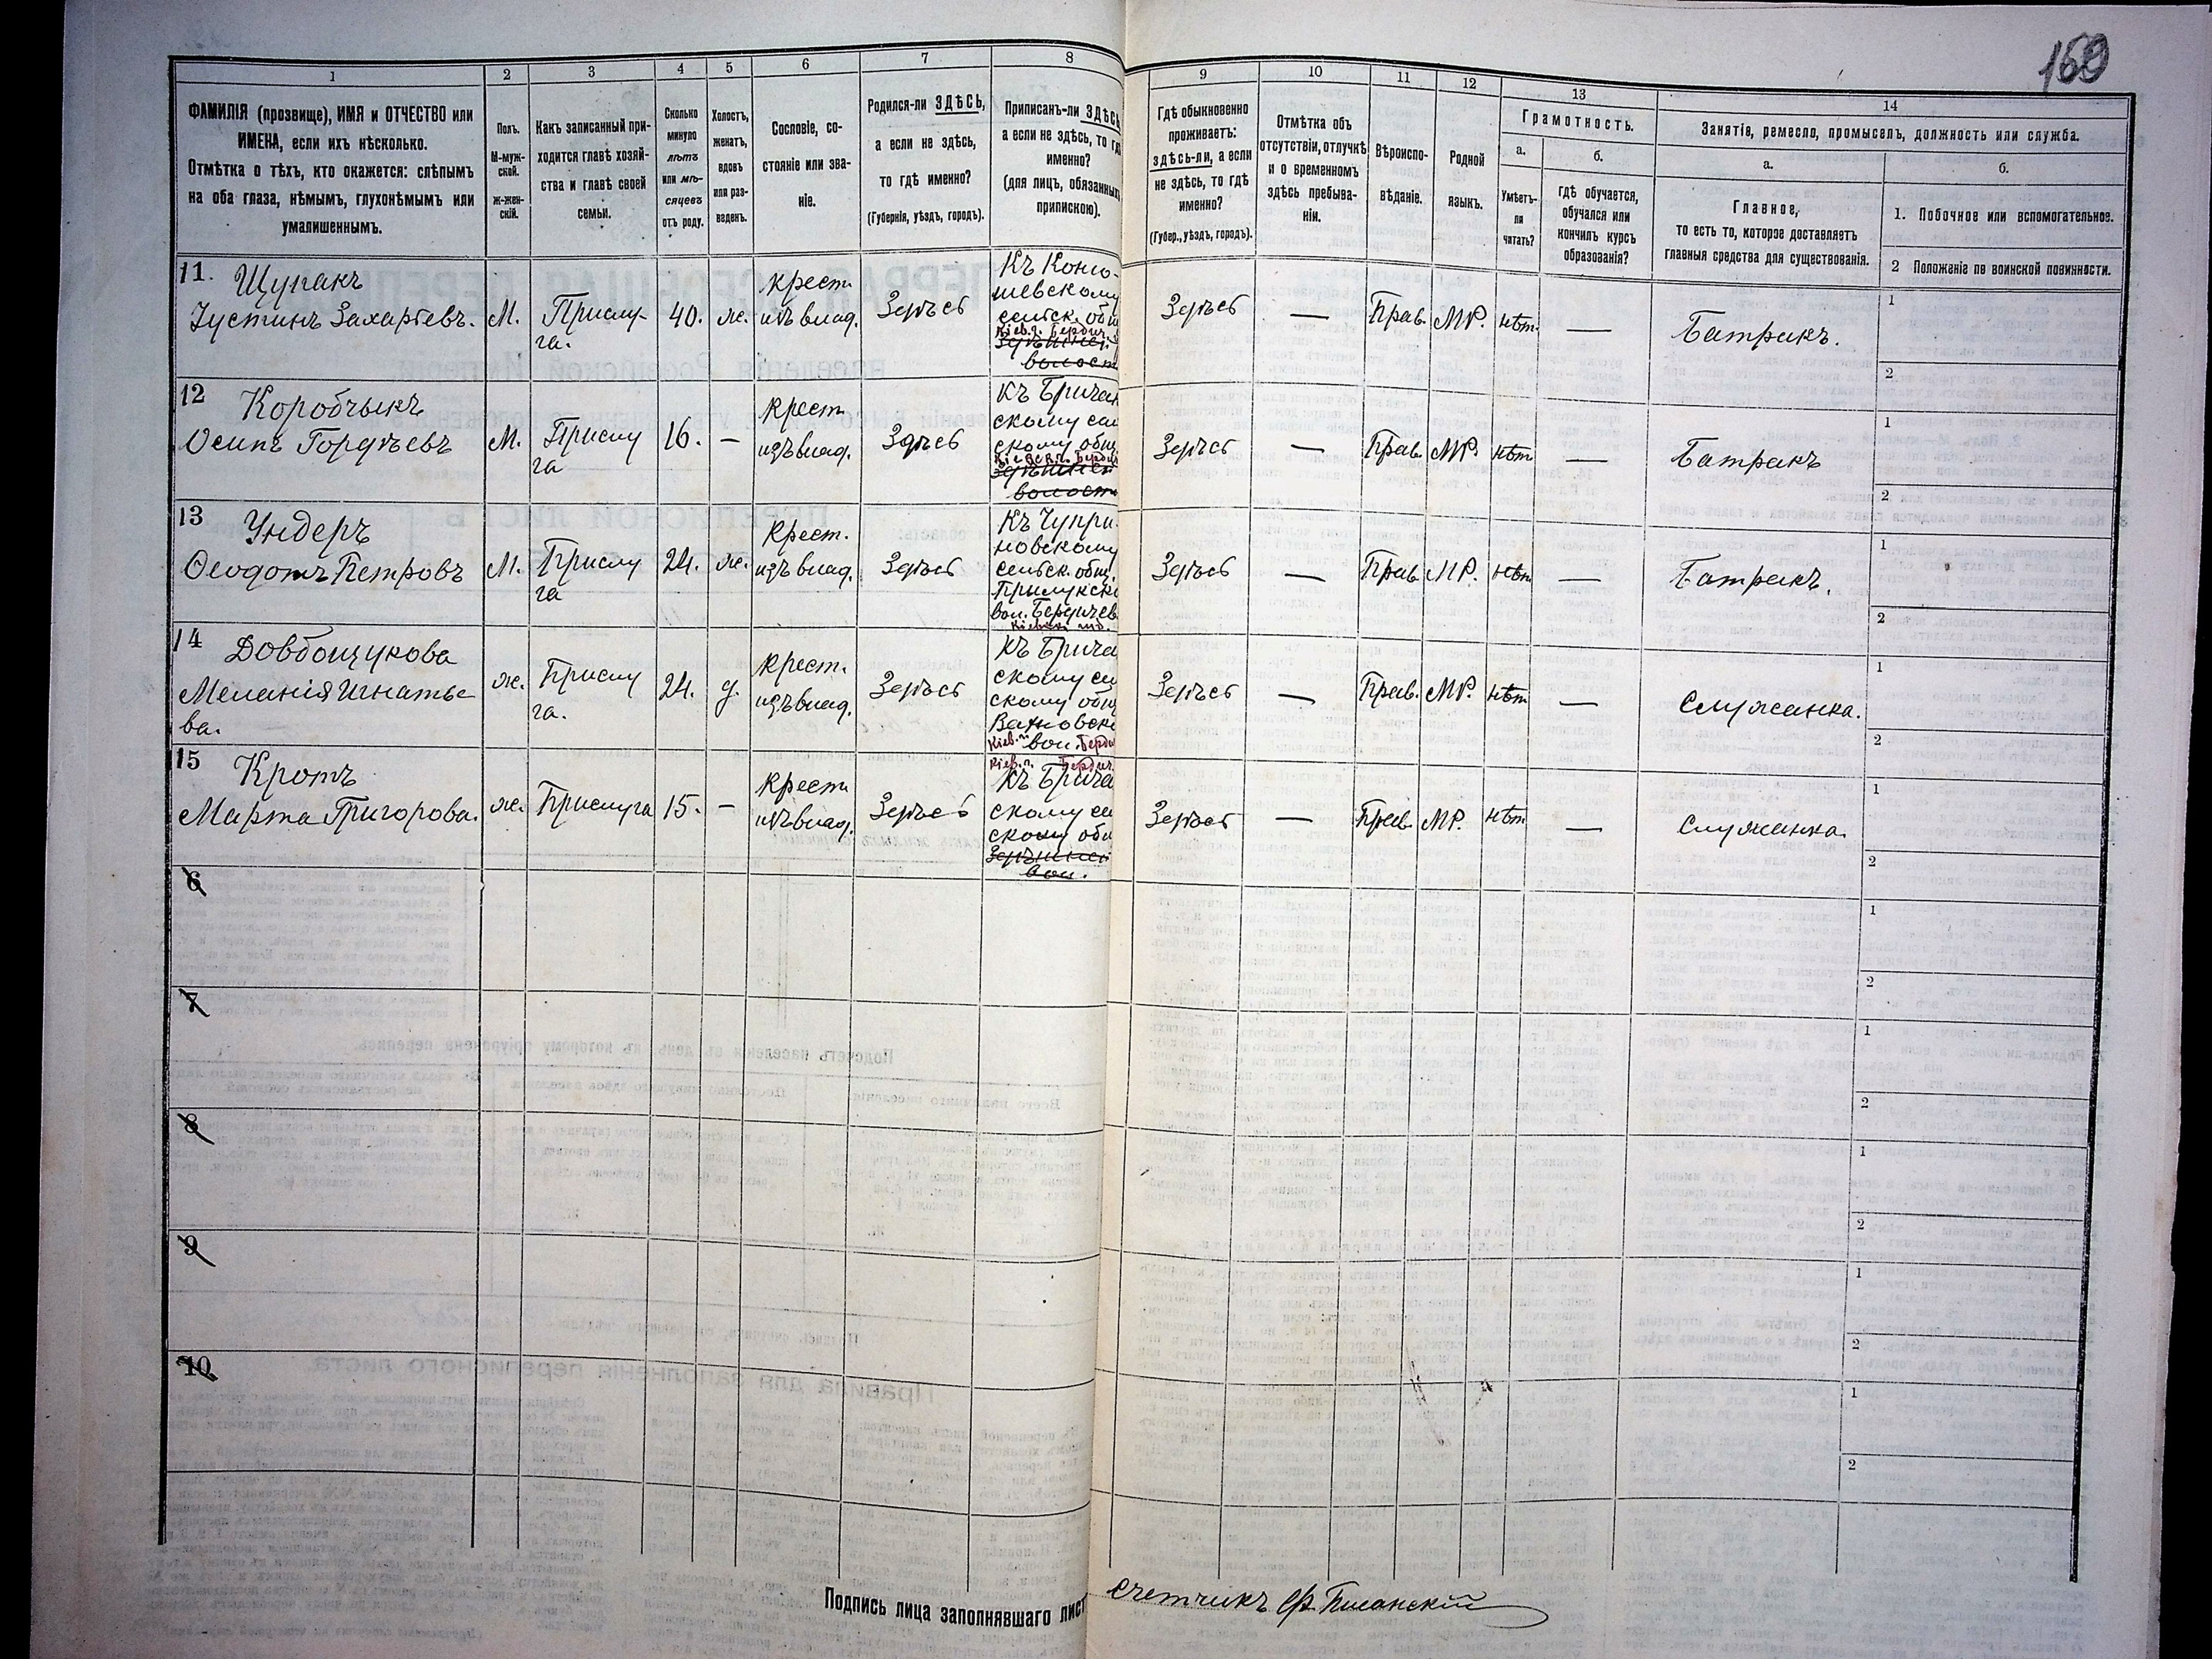 160
1 2 3 4 5 6 7 8 9 10 11 12 13 14
ФАМИЛІЯ (прозвище), ИМЯ и ОТЧЕСТВО или
ИМЕНА, если ихъ нѣсколько.
Отмѣтка о тѣхъ, кто окажется: слѣпымъ
на оба глаза, нѣмымъ, глухонѣмымъ или
умалишеннымъ.
Полъ.
М-муж-
ской.
ж-жен-
скій.
Какъ записанный при-
ходится главѣ хозяй-
ства и главѣ своей
семьи.
Сколько
минуло
лѣтъ
или мѣ-
сяцевъ
отъ роду.
Холостъ,
женатъ,
вдовъ
или раз-
веденъ.
Сословіе, со-
стояніе или зва-
ніе.
Родился-ли ЗДѢСЬ,
а если не здѣсь,
то гдѣ именно?
(Губернія, уѣздъ, городъ).
Приписанъ-ли ЗДѢСЬ
а если не здѣсь, то гд
именно?
(для лицъ, обязанных
припискою).
Гдѣ обыкновенно
проживаетъ:
здѣсь-ли, а если
не здѣсь, то гдѣ
именно?
(Губер., уѣздъ, городъ).
Отмѣтка объ
отсутствіи, отлучкѣ
и о временномъ
здѣсь пребыва-
ніи.
Вѣроиспо-
вѣданіе.
Родной
языкъ.
Грамотность.
а.
Умѣетъ-
ли
читать?
б.
гдѣ обучается,
обучался или
кончилъ курсъ
образованія?
Занятіе, ремесло, промыселъ, должность или служба.
а.
Главное,
то есть то, которое доставляетъ
главныя средства для существованія.
б.
1. Побочное или вспомогательное.
2 Положеніе по воинской повинности.
11. Щупакъ
Іустинъ Захарьевъ.
М.
Прислу-
га.
40.
ж.
крест.
изъ влад.
Здѣсь
Къ Коню-
шевскому
сельск. общ
Кіев. г. Бердич.
волост
Здѣсь
—
Прав.
МР.
нѣт.
—
Батракъ.
1
2
12 Коробчыкъ
Осипъ Гордѣевъ
М.
Прислу
га
16.
—
Крест
изъ влад.
Здѣсь
Къ Брича
скому сел
скому общ
волост
Здѣсь
—
Прав.
МР.
нѣт
—
Батракъ
1
2
13 Ундеръ
Ѳеодотъ Петровъ
М.
Прислу
га
24.
ж.
крест.
изъ влад.
Здѣсь
Къ Чупри
новскому
сельск. общ.
Прилукск
вол. Бердичев
Здѣсь
—
Прав
МР.
нѣт
—
Батракъ.
1
2
14 Довбощукова
Меланія Игнатье-
ва.
ж.
Прислу
га.
24.
д.
крест.
изъ влад.
Здѣсь
Къ Брича
скому се
скому общ
Вахновск
Кіев. г. вол. Берди
Здѣсь
—
Прав.
МР.
нѣт
—
Служанка.
1
2
15 Кротъ
Марта Григорова.
ж.
Прислуга
15.
—
Крест
изъ влад.
Здѣсь
Кіев. г. Бердич.
Къ Брича
скому се
скому общ
вол.
Здѣсь
—
Прав.
МР.
нѣт
—
Служанка.
1
2
6
1
2
7
1
2
8
1
2
9
1
2
10
1
2
Подпись лица заполнявшаго лист
Счетчикъ Ф. Писанскій